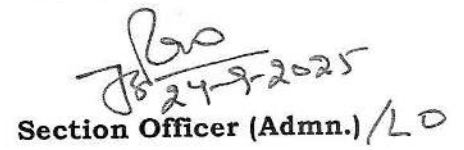 24-9-2025
Section Officer (Admn.)/LO